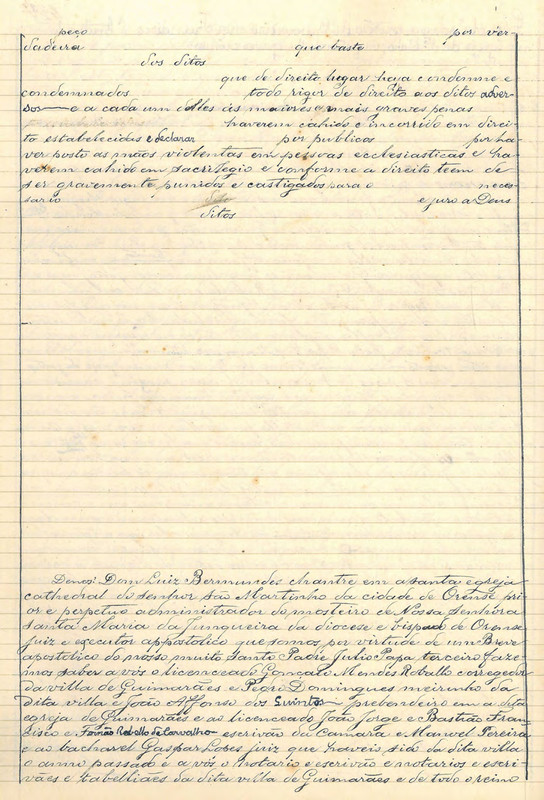 peço por ver-
dadeira que basto
dos ditos
que de direito hegar haja condemne e
condemnados todo rigor de direito aos ditos adver-
sos e a cada um delles ás maiores e mais graves penas
haverem cahido e incorrido em direi-
to estabelecidas e declarar por publicos por ha-
ver posto as mãos violentas em pessoas ecclesiasticas e ha-
verem cahido em sacrilegio e conforme a direito teem de
ser gravemente punidos e castigados para o neces-
sario e juro a Deus
ditos
Dom Luiz Bermundes chantre em a santa egreja
cathedral do senhor são Martinho da cidade de Orense pri-
or e perpetuo administrador do mosteiro de Nossa Senhora
santa Maria da Junqueira da diocese e bispado de Orense
juiz e executor appostolico que somos por virtude de um Breve
apostolico do nosso muito Santo Padre Julio Papa terceiro faze-
mos saber a vós o licenceado Gonçalo Mendes Roballo corregedor
da villa de Guimarães e Pedro Domingues meirinho da
dita villa e João Affonso dos Quintos prebendeiro em a dita
egreja de Guimarães e ao licenceado João Jorge e Bastião Fran-
cisco e Fernão Rabello de Carvalho escrivão da Camara e Manoel Pereira
e ao bacharel Gaspar Lopes juiz que haveis sido da dita villa
o anno passado e a vós o notario e escrivão e notarios e escri-
vães e tabelliães da dita villa de Guimarães e de todo o reino